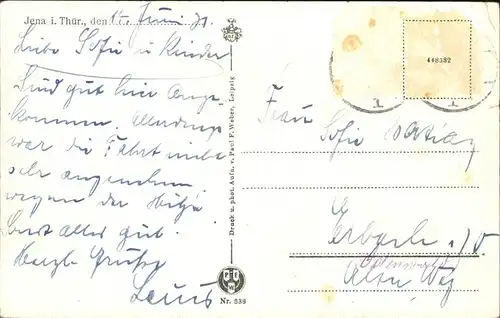 Jena i. Thür., den 12. Juni 31.
Liebe Sofie u. Kinder
Sind gut hier ange-
kommen. Allerdings
war die Fahrt nicht
sehr angenehm
wegen der Hitze
sonst alles gut.
Herzl. Grüße
Louis
Druck u. phot. Aufn. v. Paul F. Weber, Leipzig
P F W
Nr. 338
448382
Frau
Sofie
Erbach i/O
(Odenwald)
Alter Weg